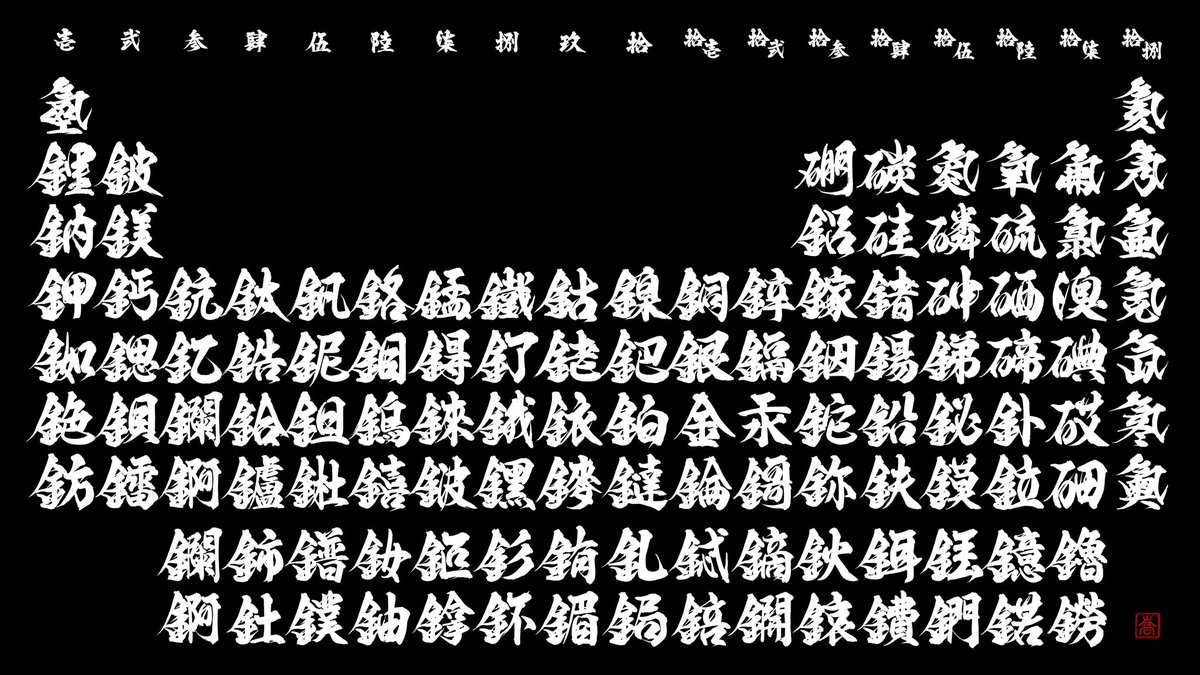 壱 弐 参 肆 伍 陸 柒 捌 玖 拾 拾壱 拾弐 拾参 拾肆 拾伍 拾陸 拾柒 拾捌
氫 氦
鋰 鈹 硼 碳 氮 氧 氟 氖
鈉 鎂 鋁 硅 磷 硫 氯 氬
鉀 鈣 鈧 鈦 釩 鉻 錳 鐵 鈷 鎳 銅 鋅 鎵 鍺 砷 硒 溴 氪
銣 鍶 釔 鋯 鈮 鉬 鍀 釕 銠 鈀 銀 鎘 銦 錫 銻 碲 碘 氙
銫 鋇 鑭 鉿 鉭 鎢 錸 鋨 銥 鉑 金 汞 鉈 鉛 鉍 釙 砹 氡
鈁 鐳 錒 鑪 𨧀 𨭎 𨨏 𨭆 䥑 鐽 錀 鎶 鉨 鈇 鏌 鉝 鿬 鿫
鑭 鈰 鐠 釹 鉕 釤 銪 釓 鋱 鏑 鈥 鉺 銩 鐿 鑥
錒 釷 鏷 鈾 鈈 鎇 鋦 錇 鐦 鎄 鐨 鍆 鍩 鐒